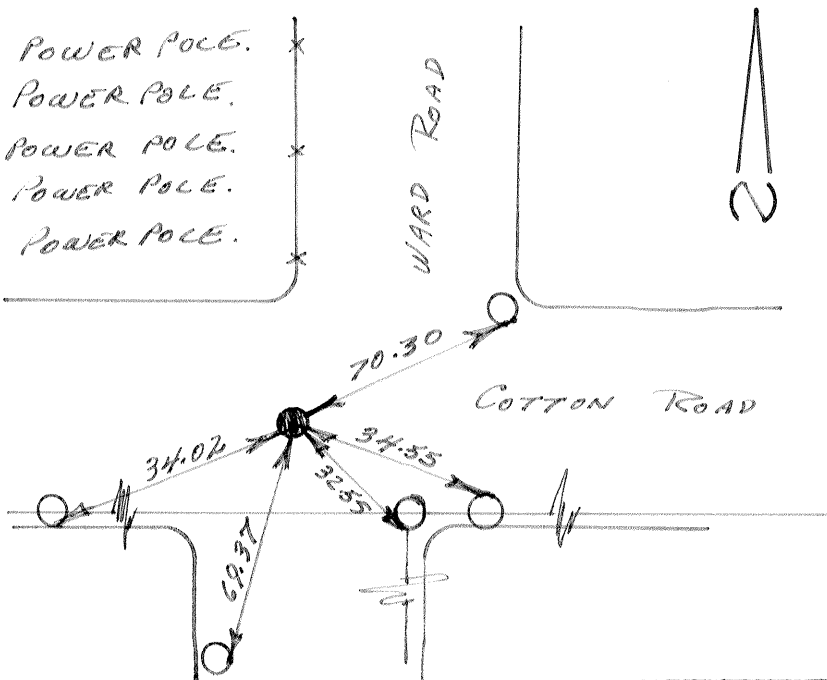 POWER POLE.
POWER POLE.
POWER POLE.
POWER POLE.
POWER POLE.
WARD ROAD
N
70.30
COTTON ROAD
34.02
34.55
32.55
69.37